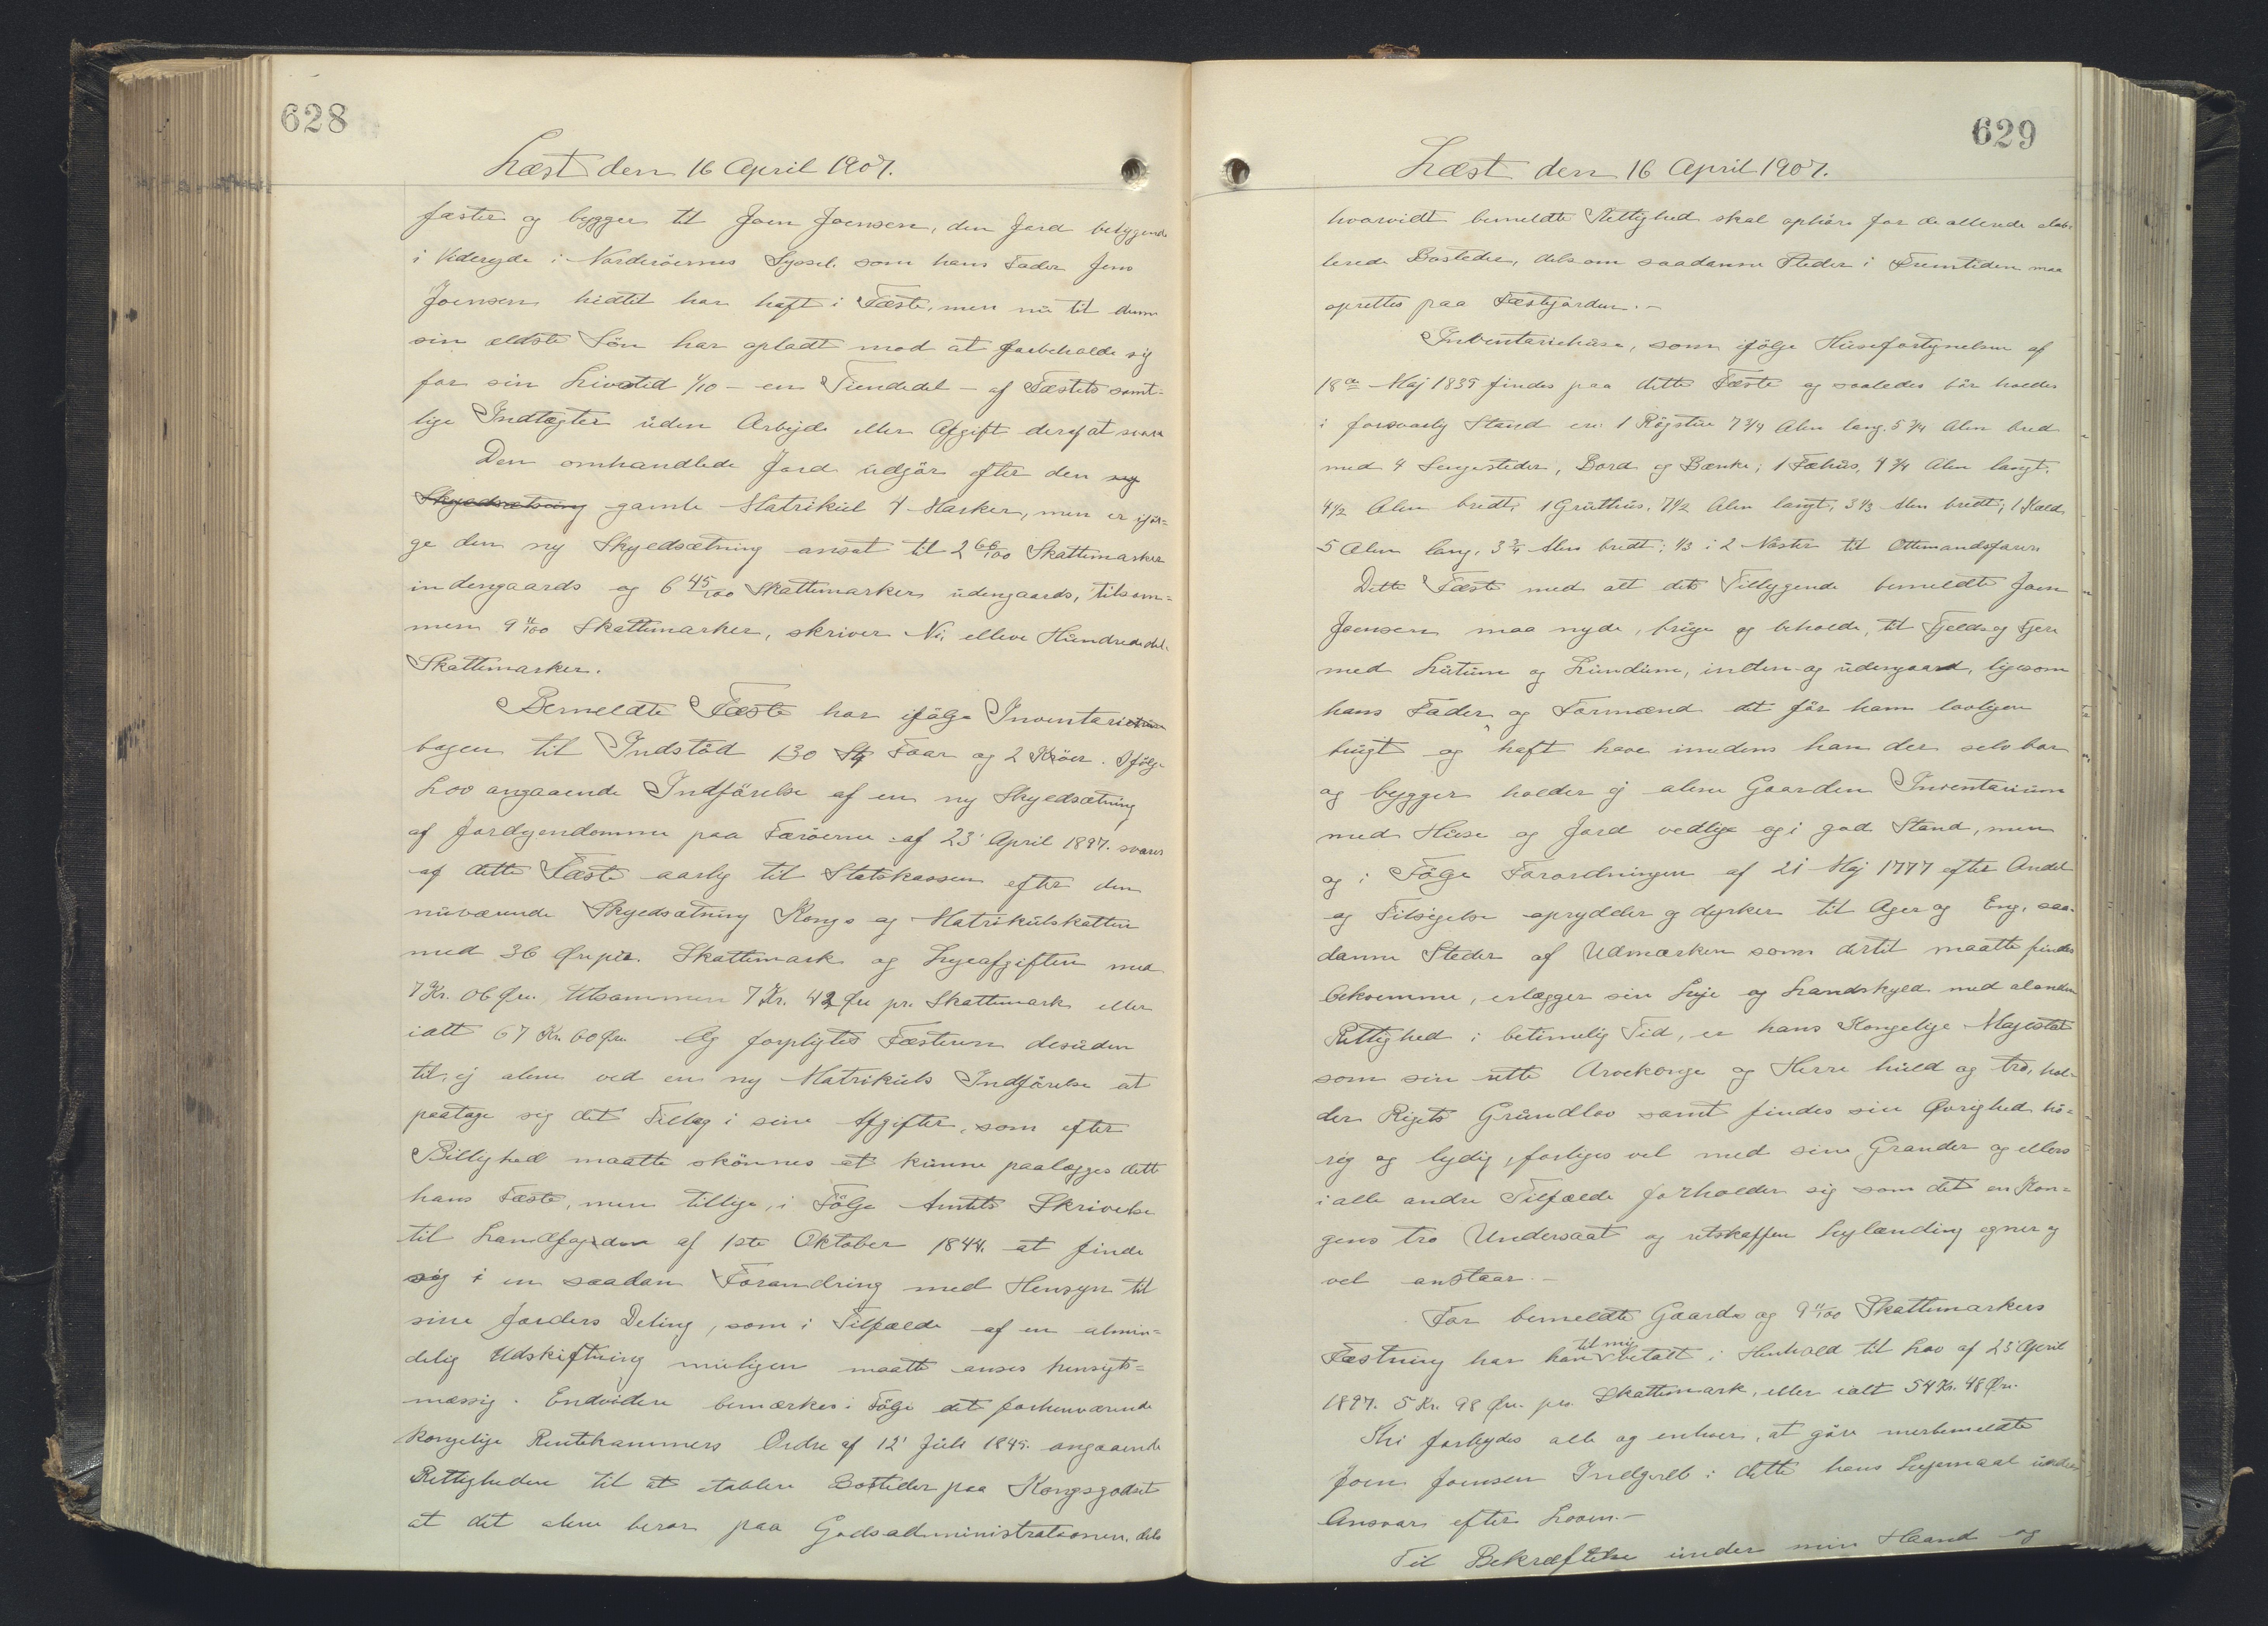 628
Læst den 16 April 1907.
fæster og bygger til Joen Joensen, den Jord beliggende
i Videreide i Norderöernes Syssel. som hans Fader Jens
Joensen hidtil har haft i Fæste, men nu til denne
sin ældste Sön har opladt mod at forbeholde sig
for sin Livstid 1/10 – en Tiendedel – af Fæstets samt-
lige Indtægter uden Arbejde eller Afgift deraf at svare
Den omhandlede Jord udgör efter den ny
Skyldsætning gamle Matrikul 4 Marker, men er iföl=
ge den ny Skyldsætning ansat til 2 66/100 Skattemarker
indengaards og 6 45/100 Skattemarker udengaards, tilsam=
men 9 11/100 Skattemarker, skriver Ni elleve Hundrededel.
Skattemarker.
Bemeldte Fæste har ifölge Inventarie
bogen til Indstöd 130 St Faar og 2 Köer. Ifölge
Lov angaaende Indförelse af en ny Skyldsætning
af Jordejendomme paa Færöerne af 23' April 1897. svares
af dette Fæste aarlig til Statskassen efter den
nuværende Skyldsætning Konge og Matrikulskatten
med 36 Øre pr. Skattemark og Lejeafgiften med
7 Kr. 06 Øre, tilsammen 7 Kr. 42 Øre pr. Skattemark eller
ialt 67 Kr. 60 Øre Og forpligtes Fæsteren desuden
til, ej alene ved en ny Matrikuls Indförelse at
paatage sig det Tillæg i sine Afgifter, som efter
Billighed maatte skönnes at kunne paalægges dette
hans Fæste, men tillige, i Fölge Amtets Skrivelse
til Landfogden af 1ste Oktober 1844. at finde
sig i en saadan Forandring med Hensyn til
sine Jorders Deling, som i Tilfælde af en almin=
delig Udskiftning muligen maatte anses hensigts=
mæssig. Endvidere bemærkes i Fölge det forhenværende
kongelige Rentekammers Ordre af 12' Juli 1845. angaaende
Rettigheden til at etablere Bosteder paa Kongsgodset
at det alene beror paa Godsadministrationen. dels
629
Læst den 16 April 1907.
hvorvidt bemeldte Rettighed skal ophöre for de allerede etab-
lerede Bosteder, dels om saadanne Steder i Fremtiden maa
oprettes paa Fæstejorden. –
Inventariehuse, som ifölge Husefortegnelsen af
18de Maj 1835 findes paa dette Fæste og saaledes bör holdes
i forsvarlig Stand er: 1 Rögstue 7 3/4 Alen lang. 5 3/4 Alen bred
med 4 Sengesteder, Bord og Bænke; 1 Fæhus, 4 3/4 Alen langt,
4 1/2 Alen bredt, 1 Gruthus, 7 1/2 Alen langt, 3 1/3 Alen bredt; 1 Hjeld
5 Alen lang, 3 3/4 Alen bredt; 1/3 i 2 Nöster til Ottemandsfarere
Dette Fæste med alt dets Tilliggende bemeldte Joen
Joensen maa nyde, bruge og beholde, til Fjelds og Fjere
med Lutum og Lundum, inden og udengaard, ligesom
hans Fader og Formænd det för ham lovligen
brugt og haft have imedens han der selv bor
og bygger holder ej alene Gaarden Inventarium
med Huse og Jord vedlige og i god Stand, men
og i Fölge Forordningen af 21 Maj 1777 efter Andel
og Tilsigelse oprydder og dyrker til Ager og Eng, saa-
danne Steder af Udmarken som dertil maatte findes
bekvemme, erlægger sin Leje og Landskyld med al anden
Rettighed i betimelig Tid, er hans Kongelige Majestæt
som sin rette Arvekonge og Herre huld og tro, hol-
der Rigets Grundlov samt findes sin Øvrighed hö=
rig og lydig, forliges vel med sine Grander og ellers
i alle andre Tilfælde forholder sig som det en Kon=
gens tro Undersaat og retskaffen Leylænding egner og
vel anstaar. –
For bemeldte Gaards og 9 11/100 Skattemarkers
Fæstning har han til mig betalt i Henhold til Lov af 23 April
1897. 5 Kr. 98 Øre. pr. Skattemark, eller ialt 54 Kr. 48 Øre.
Thi forbydes alle og enhver, at göre merbemeldte
Joen Joensen Indgreb i dette hans Lejemaal under
Ansvar efter Loven. –
Til Bekræftelse under min Haand og